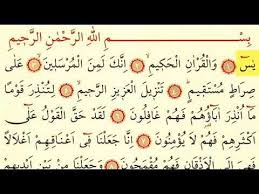 بِسْمِ اللّٰهِ الرَّحْمٰنِ الرَّحِيمِ
يٰسٓ ﴿١﴾ وَالْقُرْاٰنِ الْحَكِيمِ ﴿٢﴾ اِنَّكَ لَمِنَ الْمُرْسَلِينَ ﴿٣﴾ عَلٰى
صِرَاطٍ مُسْتَقِيمٍ ﴿٤﴾ تَنْزِيلَ الْعَزِيزِ الرَّحِيمِ ﴿٥﴾ لِتُنْذِرَ قَوْمًا
مَٓا اُنْذِرَ اٰبَٓاؤُهُمْ فَهُمْ غَافِلُونَ ﴿٦﴾ لَقَدْ حَقَّ الْقَوْلُ عَلٰٓى
اَكْثَرِهِمْ فَهُمْ لَا يُؤْمِنُونَ ﴿٧﴾ اِنَّا جَعَلْنَا فِٓى اَعْنَاقِهِمْ اَغْلَالًا
فَهِىَ اِلَى الْاَذْقَانِ فَهُمْ مُقْمَحُونَ ﴿٨﴾ وَجَعَلْنَا مِنْ بَيْنِ اَيْدِيهِمْ